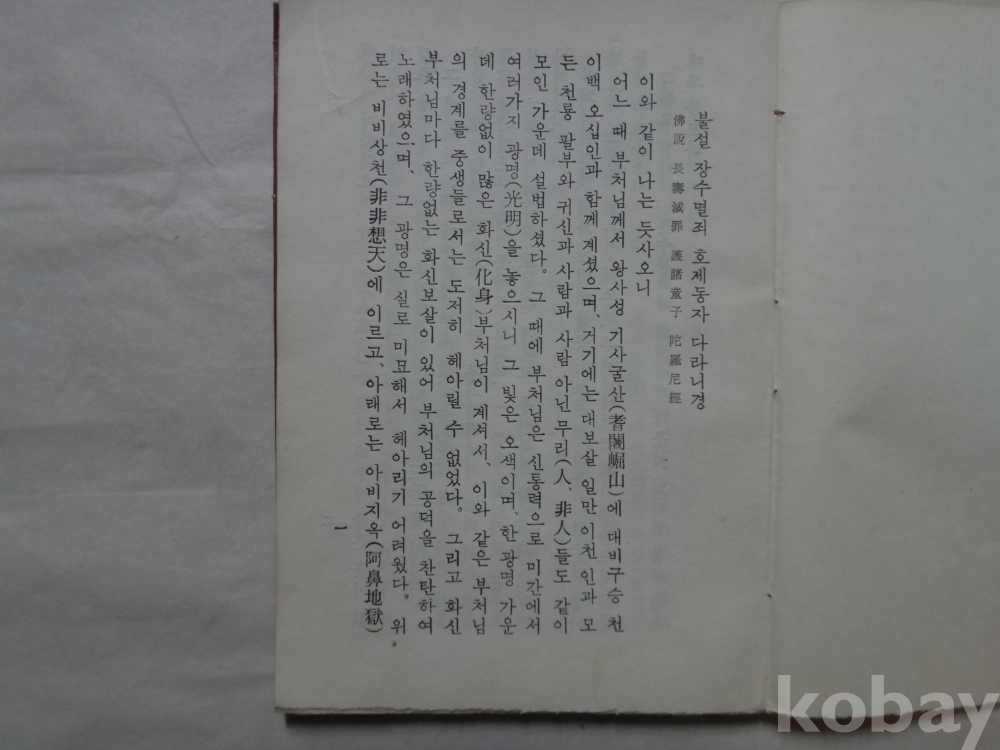 불설 장수멸죄 호제동자 다라니경
佛說 長壽滅罪 護諸童子 陀羅尼經
이와 같이 나는 듯사오니
어느 때 부처님께서 왕사성 기사굴산(耆闍崛山)에 대비구승 천
이백 오십인과 함께 계셨으며, 거기에는 대보살 일만 이천 인과 모
든 천룡 팔부와 귀신과 사람과 사람 아닌 무리(人、非人)들도 같이
모인 가운데 설법하셨다。 그 때에 부처님은 신통력으로 미간에서
여러가지 광명(光明)을 놓으시니 그 빛은 오색이며、한 광명 가운
데 한량없이 많은 화신(化身)부처님이 계셔서、이와 같은 부처님
의 경계를 중생들로서는 도저히 헤아릴 수 없었다。 그리고 화신
부처님마다 한량없는 화신보살이 있어 부처님의 공덕을 찬탄하여
노래하였으며、 그 광명은 실로 미묘해서 헤아리기 어려웠다。 위
로는 비비상천(非非想天)에 이르고、아래로는 아비지옥(阿鼻地獄)
一
kobay